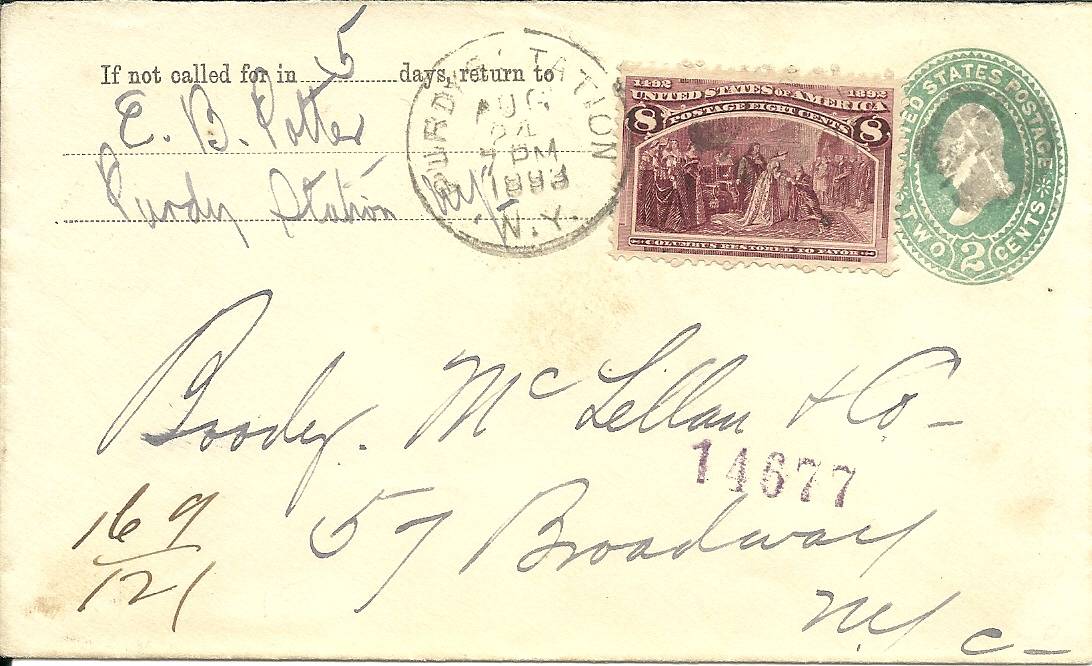 If not called for in 5 days, return to
E. B. Potter
Purdy Station
N.Y.
PURDY'S STATION
AUG
24
PM
1893
N.Y.
1492 1892
UNITED STATES OF AMERICA
POSTAGE EIGHT CENTS
8 8
COLUMBUS RESTORED TO FAVOR
UNITED STATES POSTAGE
TWO 2 CENTS
Boody. McLellan & Co
14677
57 Broadway
N.Y C
16 9
121